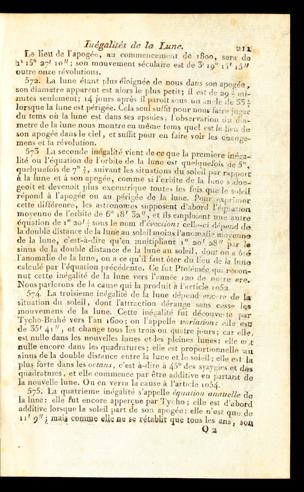 Inégalités de la Lune. 211
Le lieu de l'apogée, au commencement de 1800, sera de
2ˢ 15° 27′ 10″ ; son mouvement séculaire est de 3ˢ 19° 11′ 15″
outre onze révolutions.
572. La lune étant plus éloignée de nous dans son apogée,
son diametre apparent est alors le plus petit; il est de 29 ½ mi-
nutes seulement; 14 jours après il paroît sous un angle de 33 ½
lorsque la lune est périgée. Cela seul suffit pour nous faire juger
du tems où la lune est dans ses apsides; l'observation du dia-
metre de la lune nous montre en même tems quel est le lieu de
son apogée dans le ciel, et suffit pour en faire voir les change-
mens et la révolution.
573 La seconde inégalité vient de ce que la premiere inéga-
lité ou l'équation de l'orbite de la lune est quelquefois de 5°,
quelquefois de 7° ½, suivant les situations du soleil par rapport
à la lune et à son apogée, comme si l'orbite de la lune s'alon-
geoit et devenoit plus excentrique toutes les fois que le soleil
répond à l'apogée ou au périgée de la lune. Pour exprimer
cette différence, les astronomes supposent d'abord l'équation
moyenne de l'orbite de 6° 18′ 32″, et ils emploient une autre
équation de 1° 20′ ½ sous le nom d'évection: celle-ci dépend de
la double distance de la lune au soleil moins l'anomalie moyenne
de la lune, c'est-à-dire qu'en multipliant 1° 20′ 28″ par le
sinus de la double distance de la lune au soleil, dont on a ôté
l'anomalie de la lune, on a ce qu'il faut ôter du lieu de la lune
calculé par l'équation précédente. Ce fut Ptolémée qui recon-
nut cette inégalité de la lune vers l'année 120 de notre ere.
Nous parlerons de la cause qui la produit à l'article 1052.
574. La troisieme inégalité de la lune dépend encore de la
situation du soleil, dont l'attraction dérange sans cesse les
mouvemens de la lune. Cette inégalité fut découverte par
Tycho-Brahé vers l'an 1600; on l'appelle variation: elle est
de 35′ 41″, et change tous les trois ou quatre jours; car elle
est nulle dans les nouvelles lunes et les pleines lunes; elle est
nulle encore dans les quadratures; elle est proportionnelle au
sinus de la double distance entre la lune et le soleil; elle est la
plus forte dans les octans, c'est-à-dire à 45° des syzygies et des
quadratures, et elle commence par être additive en partant de
la nouvelle lune. On en verra la cause à l'article 1054.
575. La quatrieme inégalité s'appelle équation annuelle de
la lune; elle fut encore apperçue par Tycho; elle est d'abord
additive lorsque le soleil part de son apogée: elle n'est que de
11′ 9″; mais comme elle ne se rétablit que tous les ans, son
Q 2